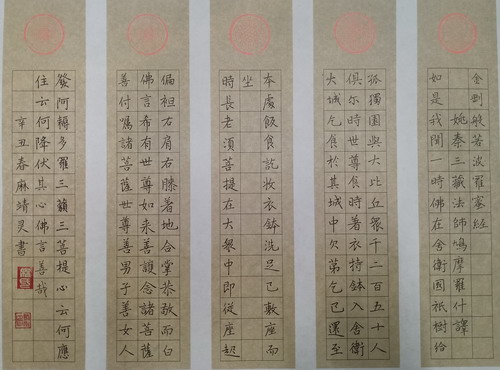 金剛般若波羅蜜經
姚秦三藏法師鳩摩羅什譯
如是我聞一時佛在舍衛國祇樹給
孤獨園與大比丘衆千二百五十人
俱尔時世尊食時著衣持鉢入舍衛
大城乞食於其城中次第乞已還至
本處飯食訖收衣鉢洗足已敷座而
坐
時長老須菩提在大衆中即從座起
偏袒右肩右膝著地合掌恭敬而白
佛言希有世尊如来善護念諸菩薩
善付囑諸菩薩世尊善男子善女人
發阿耨多羅三藐三菩提心云何應
住云何降伏其心佛言善哉
辛丑春麻靖灵書